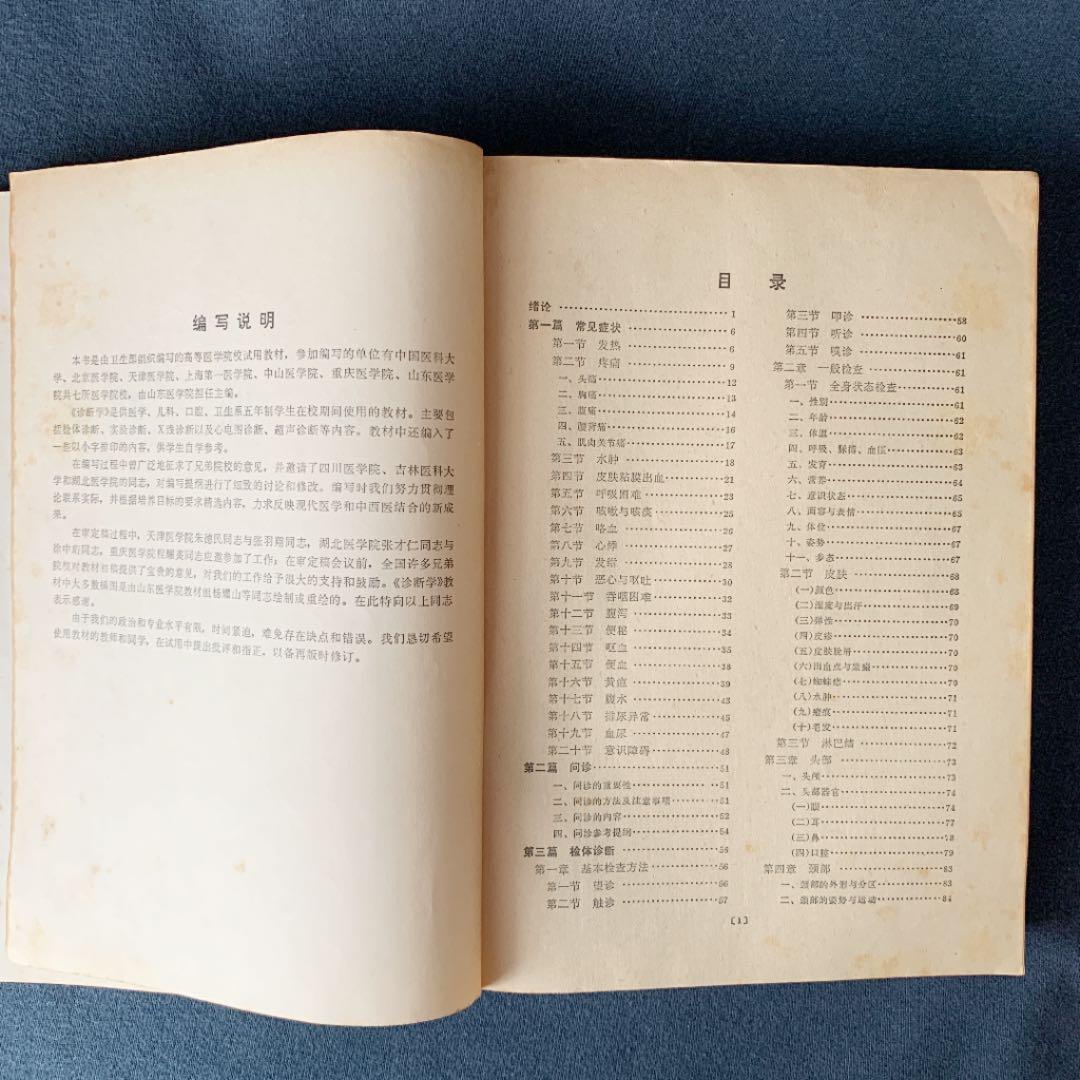 编写说明
本书是由卫生部组织编写的高等医学院校试用教材，参加编写的单位有中国医科大
学、北京医学院、天津医学院、上海第一医学院、中山医学院、重庆医学院、山东医学
院共七所医学院校，由山东医学院担任主编。
《诊断学》是供医学、儿科、口腔、卫生系五年制学生在校期间使用的教材。主要包
括检体诊断、实验诊断、X线诊断以及心电图诊断、超声诊断等内容。教材中还编入了
一些以小字排印的内容，供学生自学参考。
在编写过程中曾广泛地征求了兄弟院校的意见，并邀请了四川医学院、吉林医科大
学和湖北医学院的同志，对编写提纲进行了细致的讨论和修改。编写时我们努力贯彻理
论联系实际，并根据培养目标的要求精选内容，力求反映现代医学和中西医结合的新成
果。
在审定稿过程中，天津医学院朱德民同志与张羽翔同志，湖北医学院张才仁同志与
徐中珩同志，重庆医学院程耀英同志应邀参加了工作；在审定稿会议前，全国许多兄弟
院校对教材初稿提供了宝贵的意见，对我们的工作给予很大的支持和鼓励。《诊断学》教
材中大多数插图是由山东医学院教材组杨耀山等同志绘制或重绘的。在此特向以上同志
表示感谢。
由于我们的政治和专业水平有限，时间紧迫，难免存在缺点和错误。我们恳切希望
使用教材的教师和同学，在试用中提出批评和指正，以备再版时修订。
目 录
绪论 1
第一篇 常见症状 6
第一节 发热 6
第二节 疼痛 9
一、头痛 12
二、胸痛 13
三、腹痛 14
四、腰背痛 16
五、肌肉关节痛 17
第三节 水肿 18
第四节 皮肤粘膜出血 21
第五节 呼吸困难 23
第六节 咳嗽与咳痰 25
第七节 咯血 26
第八节 心悸 27
第九节 发绀 28
第十节 恶心与呕吐 30
第十一节 吞咽困难 32
第十二节 腹泻 33
第十三节 便秘 34
第十四节 呕血 35
第十五节 便血 37
第十六节 黄疸 39
第十七节 腹水 43
第十八节 排尿异常 45
第十九节 血尿 47
第二十节 意识障碍 48
第二篇 问诊 51
一、问诊的重要性 51
二、问诊的方法及注意事项 51
三、问诊的内容 52
四、问诊参考提纲 54
第三篇 检体诊断 56
第一章 基本检查方法 56
第一节 望诊 56
第二节 触诊 57
第三节 叩诊 58
第四节 听诊 60
第五节 嗅诊 61
第二章 一般检查 61
第一节 全身状态检查 61
一、性别 61
二、年龄 62
三、体温 62
四、呼吸、脉搏、血压 63
五、发育 63
六、营养 64
七、意识状态 65
八、面容与表情 65
九、体位 67
十、姿势 67
十一、步态 67
第二节 皮肤 68
(一)颜色 68
(二)湿度与出汗 69
(三)弹性 70
(四)皮疹 70
(五)皮肤脱屑 70
(六)出血点与紫癜 70
(七)蜘蛛痣 70
(八)水肿 71
(九)瘢痕 71
(十)毛发 71
第三节 淋巴结 72
第三章 头部 73
一、头颅 73
二、头部器官 74
(一)眼 74
(二)耳 77
(三)鼻 78
(四)口腔 79
第四章 颈部 83
一、颈部的外形与分区 83
二、颈部的姿势与运动 84
〔1〕